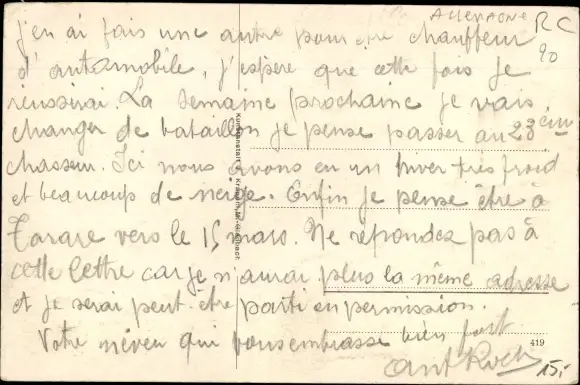 ALLEMAGNE
RC
90
j'en ai fais une autre pour être chauffeur
d'automobile, j'espère que cette fois je
réussirai. La semaine prochaine je vais
changer de bataillon je pense passer au 23ème
chasseur. Ici nous avons eu un hiver très froid
et beaucoup de neige. Enfin je pense être à
Tarare vers le 15 mars. Ne répondez pas à
cette lettre car je n'aurai plus la même adresse
et je serai peut-être parti en permission.
Votre neveu qui vous embrasse bien fort
419
15,-